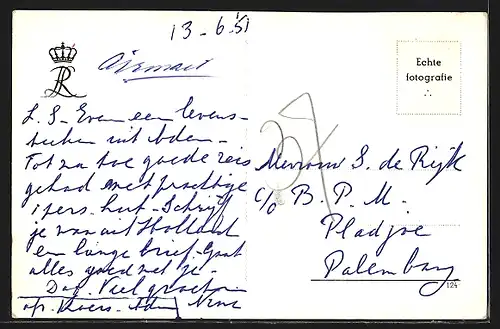 13-6-51
Airmail
L. S - Even een levens-
teeken uit Aden -
Tot zu toe goede reis
gehad met prachtige
1 pers. hut - Schrijf
je van uit Holland
en lange brief. Gaat
alles goed met je -
Dag. Veel groeten
op. Koers.
Echte
fotografie
37
Mevrouw S. de Rijk
c/o B. P. M.
Pladjoe
Palembang
124